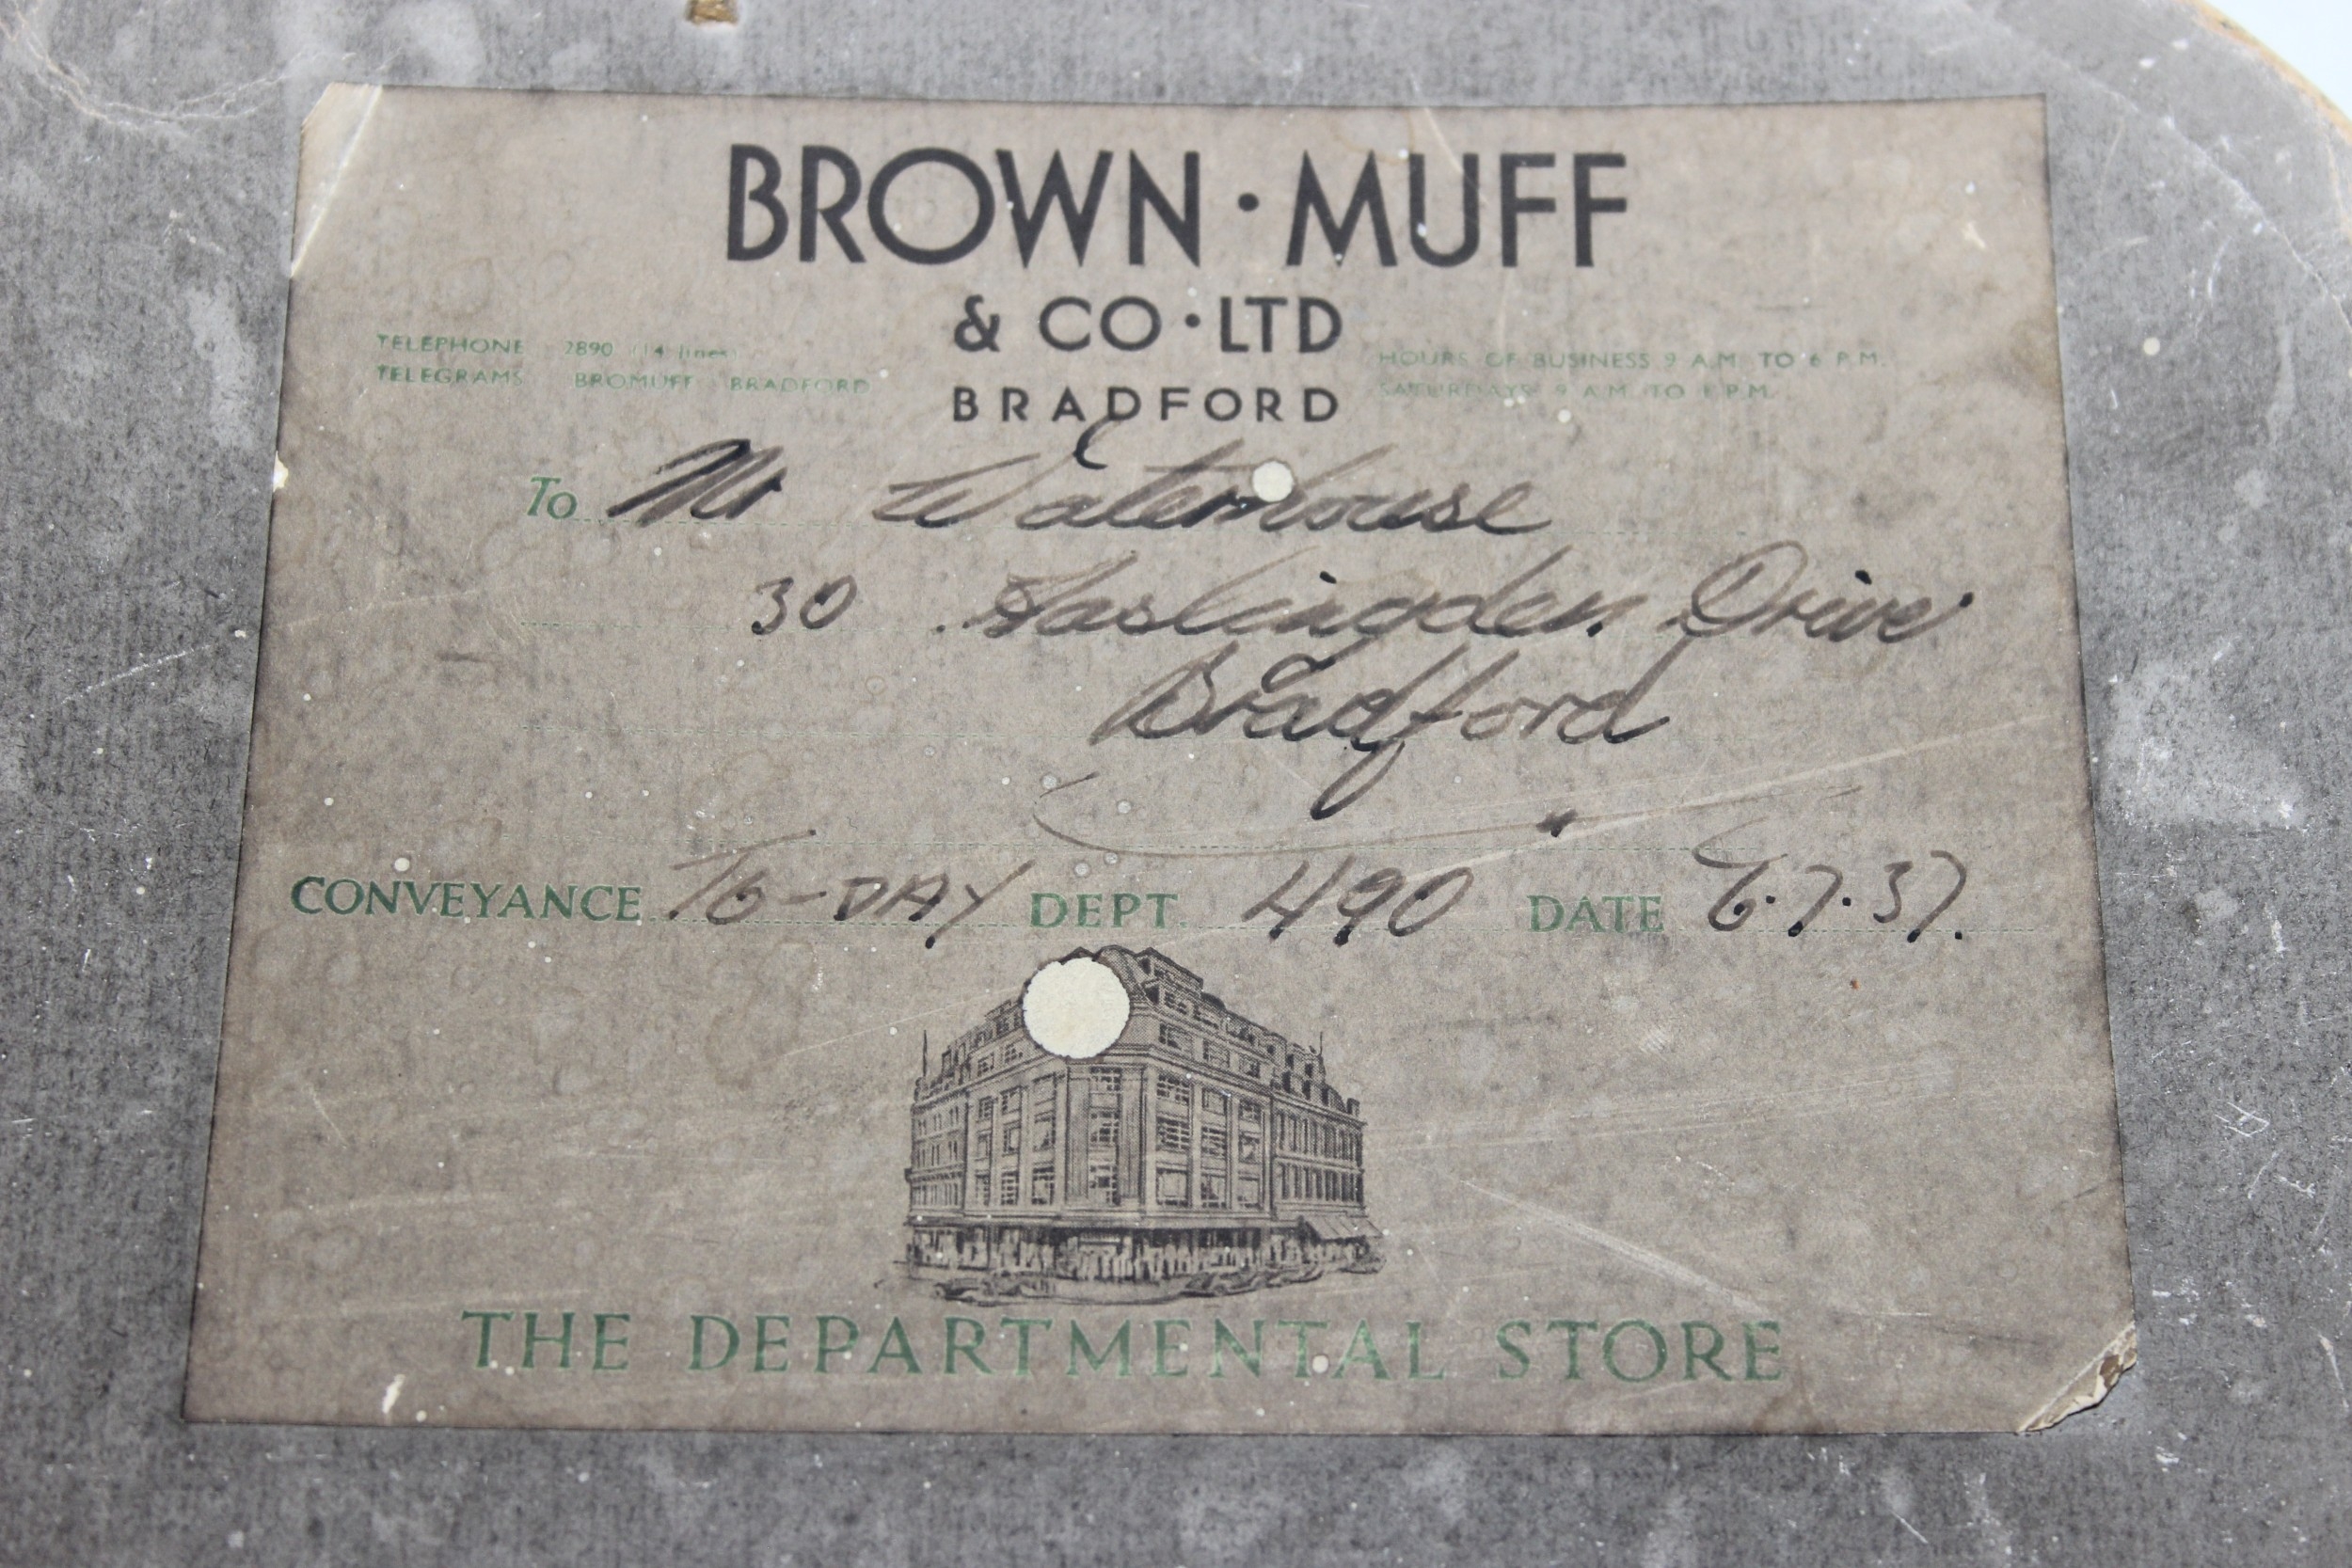 BROWN · MUFF
& CO · LTD
BRADFORD
TELEPHONE 2890 (14 lines)
TELEGRAMS BROMUFF BRADFORD
HOURS OF BUSINESS 9 A.M. TO 6 P.M.
SATURDAYS 9 A.M. TO 1 P.M.
To Mr Waterhouse
30 Haslingden Drive
Bradford
CONVEYANCE TO-DAY DEPT. 490 DATE 6.7.37.
THE DEPARTMENTAL STORE